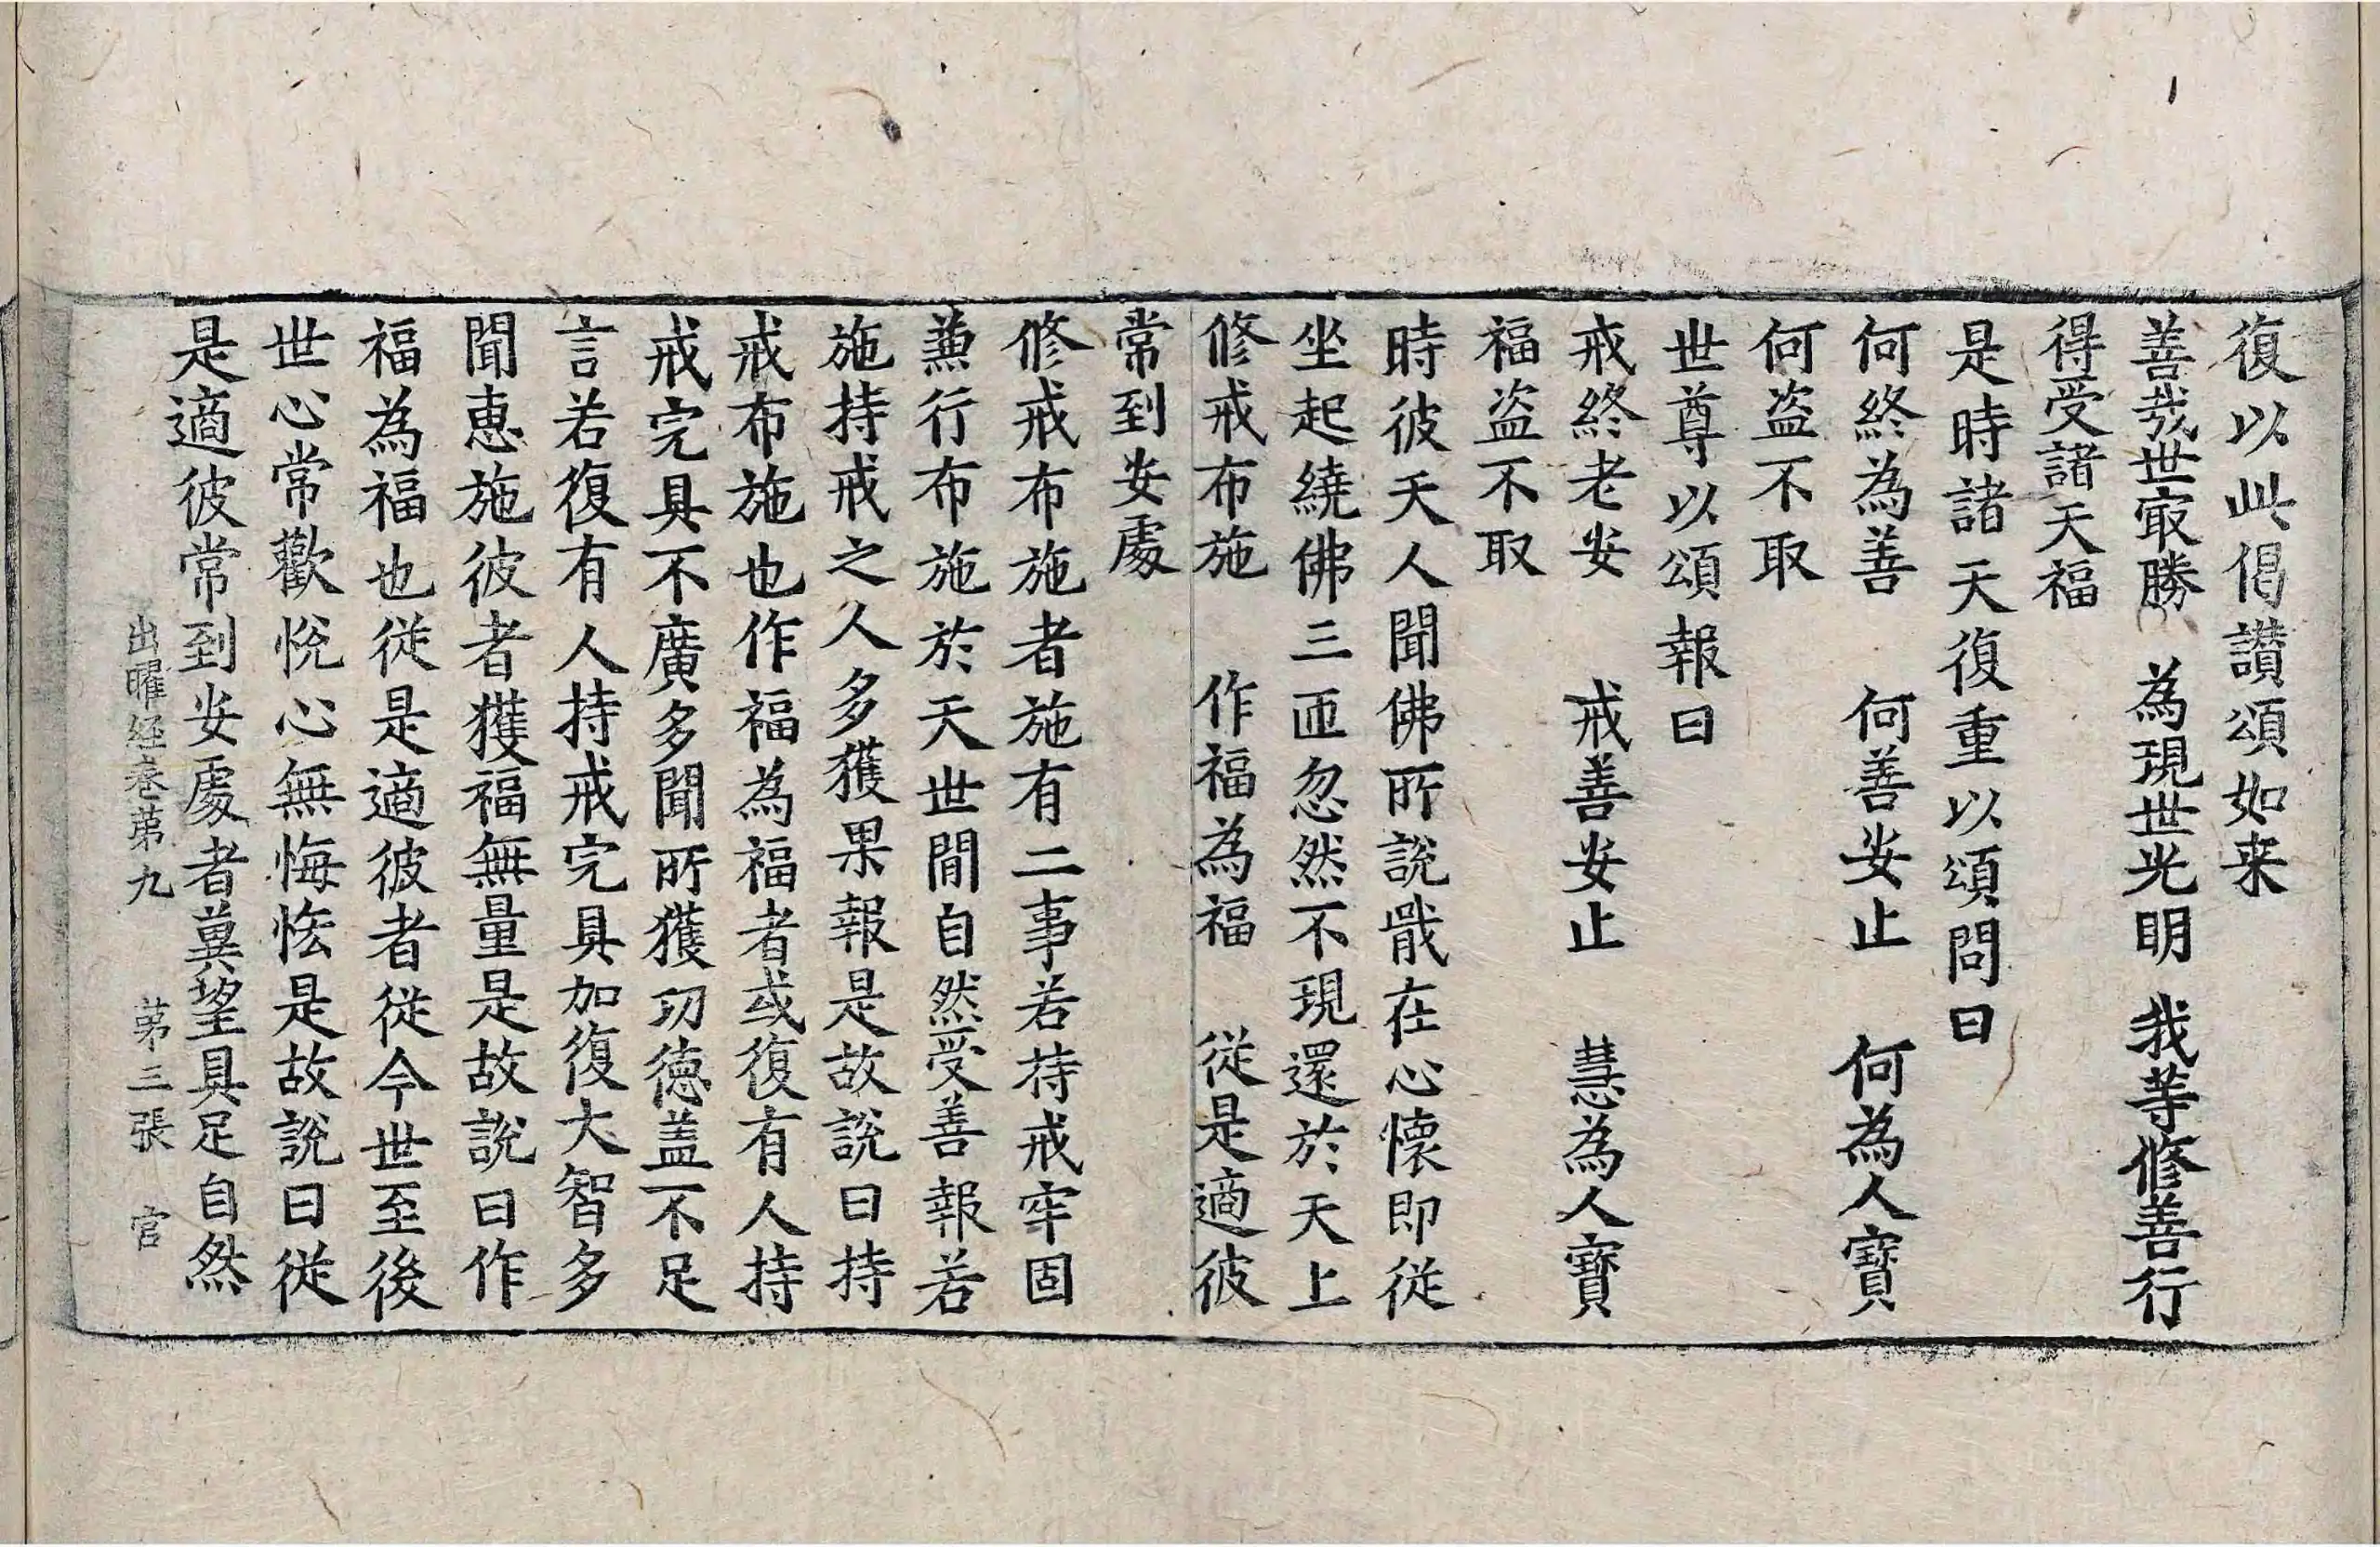 復以此偈讃頌如来
善哉世㝡勝　為現世光明　我等修善行
得受諸天福
是時諸天復重以頌問曰
何終為善　何善安止　何為人寶
何盜不取
世尊以頌報曰
戒終老安　戒善安止　慧為人寶
福盜不取
時彼天人聞佛所說戢在心懷即從
坐起繞佛三匝忽然不現還於天上
修戒布施　作福為福　從是適彼
常到安處
修戒布施者施有二事若持戒牢固
兼行布施於天世間自然受善報若
施持戒之人多獲果報是故說曰持
戒布施也作福為福者或復有人持
戒完具不廣多聞所獲功德盖不足
言若復有人持戒完具加復大智多
聞惠施彼者獲福無量是故說曰作
福為福也從是適彼者從今世至後
世心常歡悅心無悔恡是故說曰從
是適彼常到安處者冀望具足自然
出曜經卷第九　第三張　官